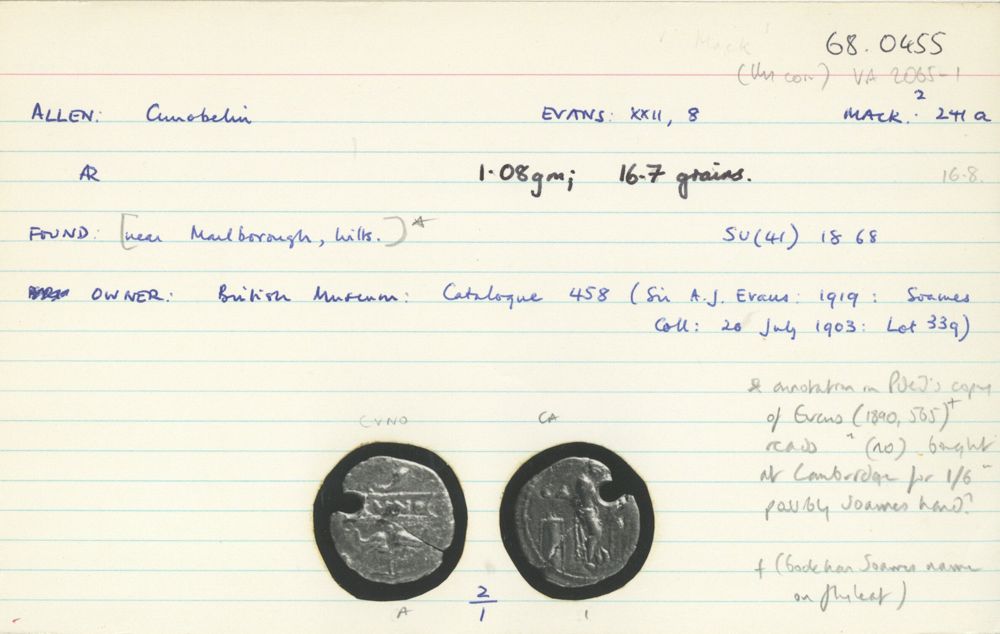 Mack
68.0455
(Un con) VA 2065-1
ALLEN: Cunobelin EVANS: XXII, 8 MACK.² 241a
AR 1.08gm; 16.7 grains. 16.8.
FOUND: [near Marlborough, Wilts.]* SU(41) 18 68
OWNER: British Museum: Catalogue 458 (Sir A.J. Evans: 1919: Soames
Coll: 20 July 1903: Lot 339)
* annotation in PDeJ's copy
of Evans (1890, 565)†
reads "(no) bought
at Cambridge for 1/6"
possibly Soames hand?
† (book has Soames name
on flyleaf)
CVNO CA
VNO
A 2/1 1